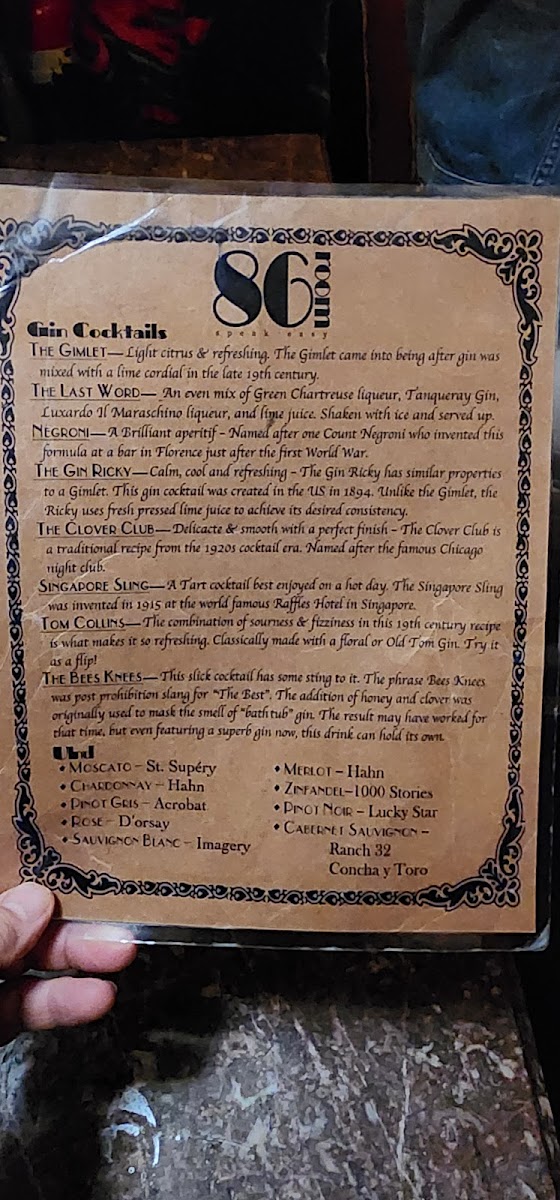 86 room
speak easy
Gin Cocktails
The Gimlet— Light citrus & refreshing. The Gimlet came into being after gin was
mixed with a lime cordial in the late 19th century.
The Last Word— An even mix of Green Chartreuse liqueur, Tanqueray Gin,
Luxardo Il Maraschino liqueur, and lime juice. Shaken with ice and served up.
Negroni—A Brilliant aperitif - Named after one Count Negroni who invented this
formula at a bar in Florence just after the first World War.
The Gin Ricky—Calm, cool and refreshing – The Gin Ricky has similar properties
to a Gimlet. This gin cocktail was created in the US in 1894. Unlike the Gimlet, the
Ricky uses fresh pressed lime juice to achieve its desired consistency.
The Clover Club—Delicacte & smooth with a perfect finish – The Clover Club is
a traditional recipe from the 1920s cocktail era. Named after the famous Chicago
night club.
Singapore Sling—A Tart cocktail best enjoyed on a hot day. The Singapore Sling
was invented in 1915 at the world famous Raffles Hotel in Singapore.
Tom Collins—The combination of sourness & fizziness in this 19th century recipe
is what makes it so refreshing. Classically made with a floral or Old Tom Gin. Try it
as a flip!
The Bees Knees—This slick cocktail has some sting to it. The phrase Bees Knees
was post prohibition slang for "The Best". The addition of honey and clover was
originally used to mask the smell of "bath tub" gin. The result may have worked for
that time, but even featuring a superb gin now, this drink can hold its own.
• Moscato – St. Supéry
• Chardonnay – Hahn
• Pinot Gris – Acrobat
• Rose – D'orsay
• Sauvignon Blanc – Imagery
• Merlot – Hahn
• Zinfandel–1000 Stories
• Pinot Noir – Lucky Star
• Cabernet Sauvignon –
Ranch 32
Concha y Toro